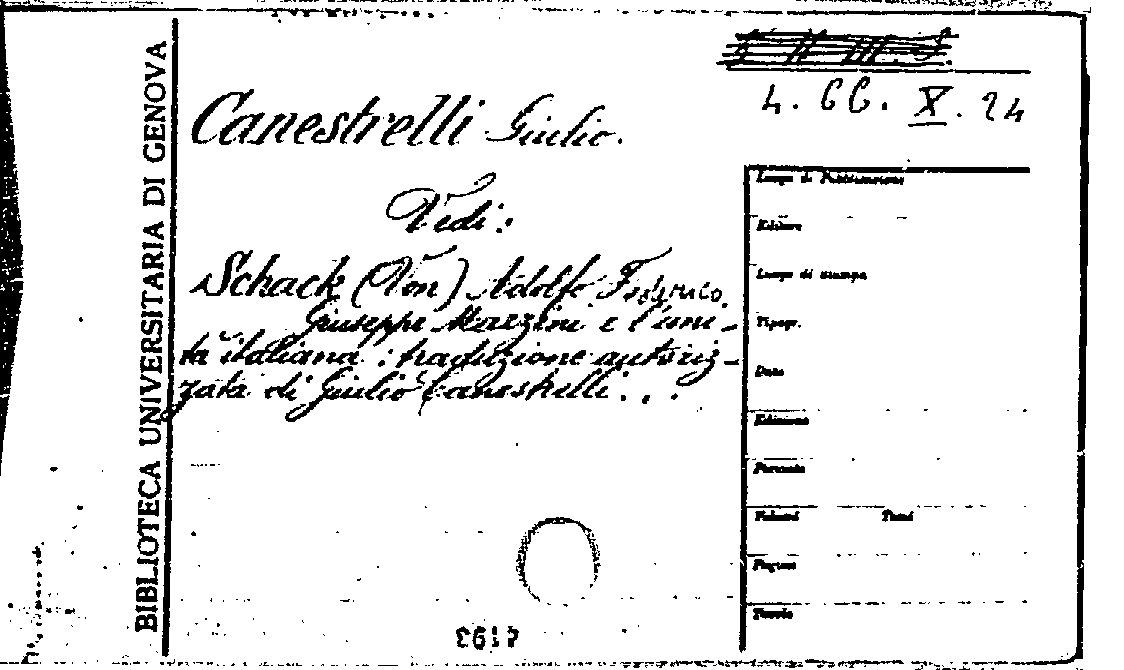 BIBLIOTECA UNIVERSITARIA DI GENOVA
4. GG. X. 24
Canestrelli Giulio.
Vedi:
Schack (Von) Adolfo Federico.
Giuseppe Mazzini e l'uni-
tà italiana: traduzione autoriz-
zata di Giulio Canestrelli...
Luogo di Pubblicazione
Editore
Luogo di stampa
Tipogr.
Data
Edizione
Formato
Volumi Tomi
Pagine
Tavole